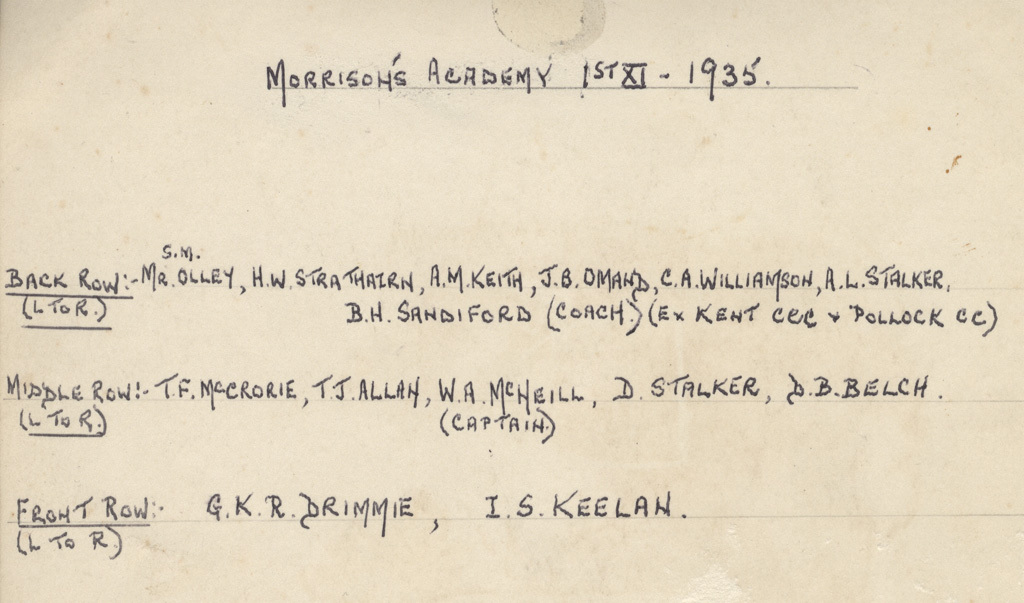 MORRISON'S ACADEMY 1ST XI - 1935.
S.M.
BACK ROW:- MR. OLLEY, H.W. STRATHAIRN, A.M. KEITH, J.B. OMAND, C.A. WILLIAMSON, A.L. STALKER,
(L TO R.) B.H. SANDIFORD (COACH.) (EX KENT CCC & POLLOCK CC)
MIDDLE ROW:- T.F. McCRORIE, T.J. ALLAN, W.A. McNEILL, D. STALKER, D.B. BELCH.
(L TO R.) (CAPTAIN.)
FRONT ROW:- G.K.R. DRIMMIE, I.S. KEELAN.
(L TO R)